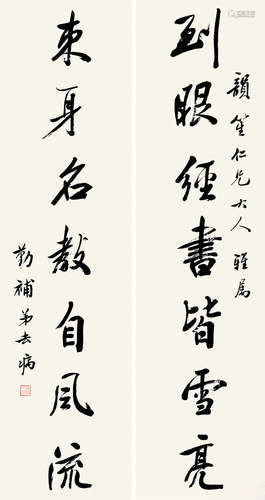 到眼經書皆雪亮
韻笙仁兄大人雅屬
束身名教自風流
勤補弟去病